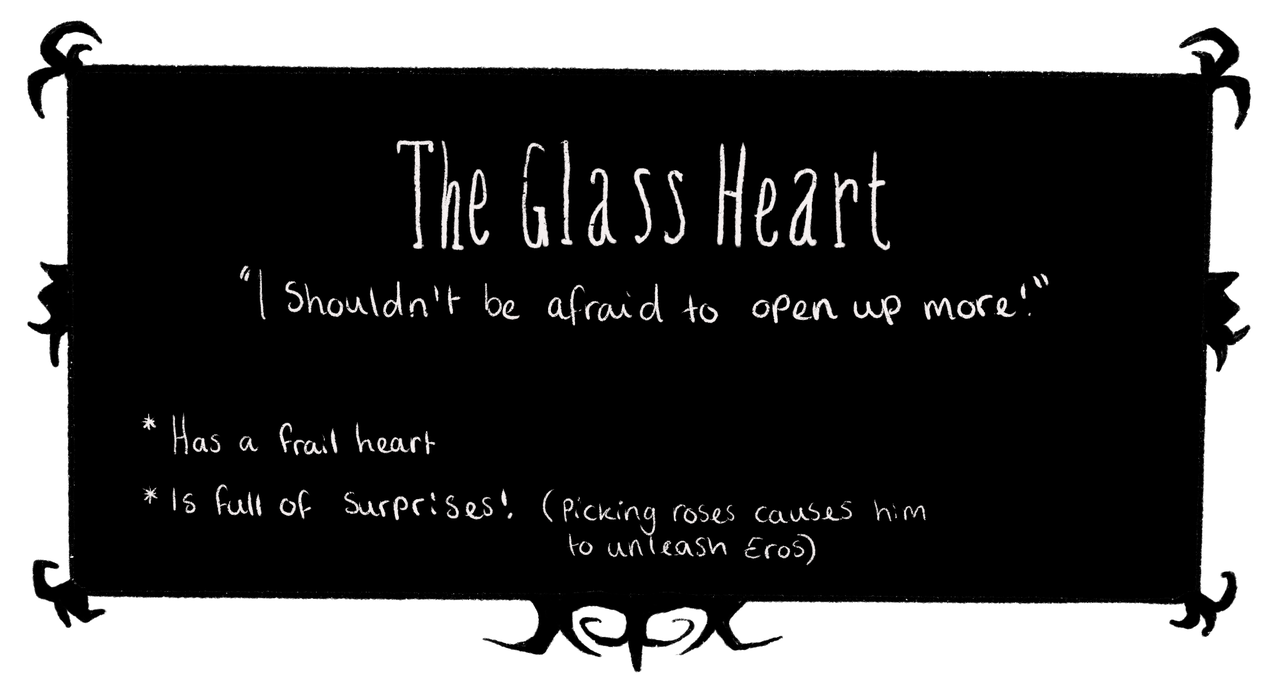 The Glass Heart
"I Shouldn't be afraid to open up more!"
* Has a frail heart
* Is full of surprises! (picking roses causes him
to unleash Eros)